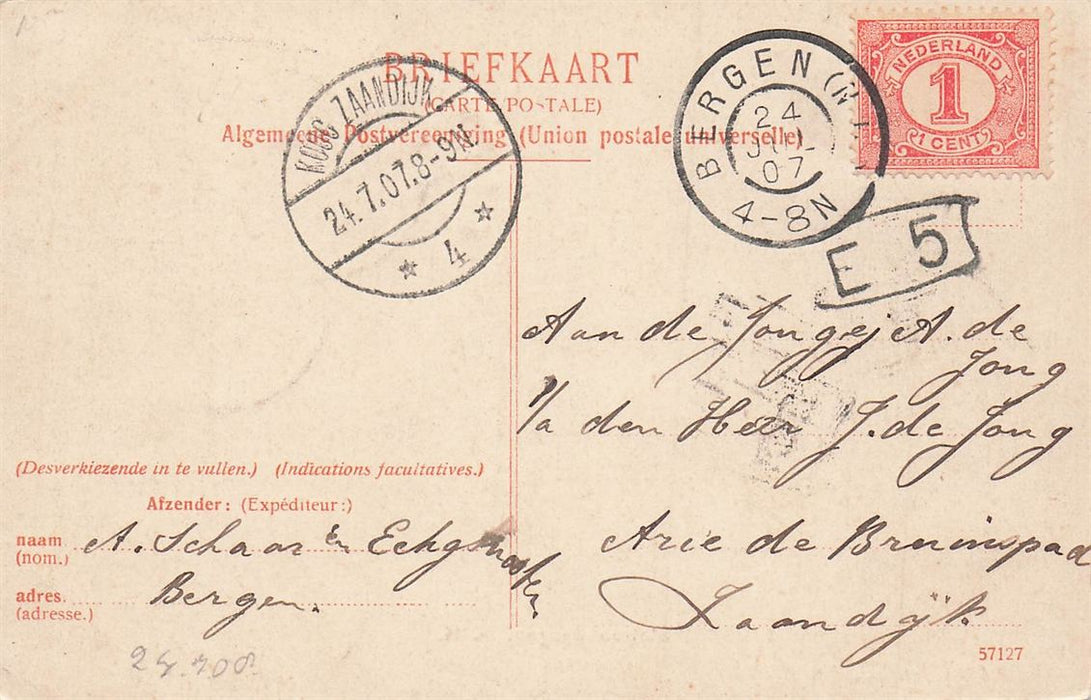 BRIEFKAART
(CARTE POSTALE)
Algemeene Postvereeniging (Union postale universelle)
KOOG-ZAANDIJK
24.7.07.8-9N.
4
BERGEN (N.
24
JUL
07
4-8N
NEDERLAND
1
(1 CENT)
E 5
Aan de Jongej A. de
Jong
P/a den Heer J. de Jong
Arie de Bruinspad
Zaandijk
(Desverkiezende in te vullen.) (Indications facultatives.)
Afzender: (Expéditeur:)
naam (nom.) A. Schaar en Echgenoote
adres. (adresse.) Bergen.
57127